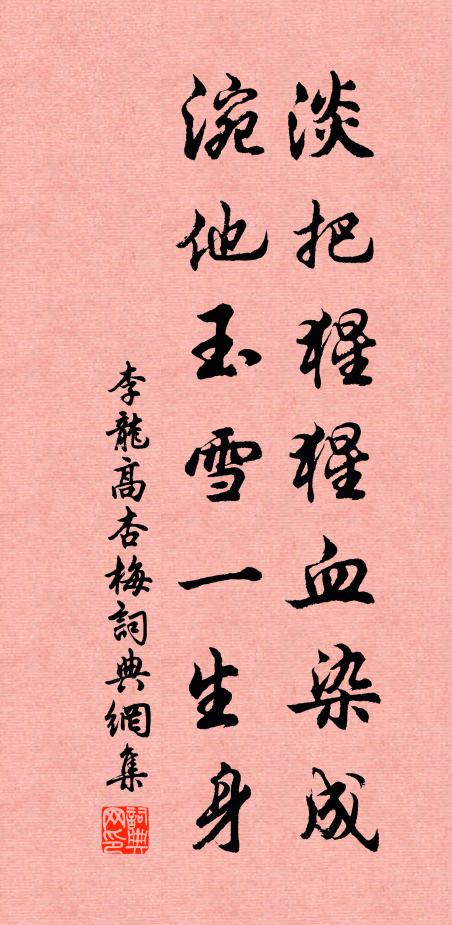 淡把猩猩血染成
涴他玉雪一生身
李龍高杏梅詞典網集
詞典网印